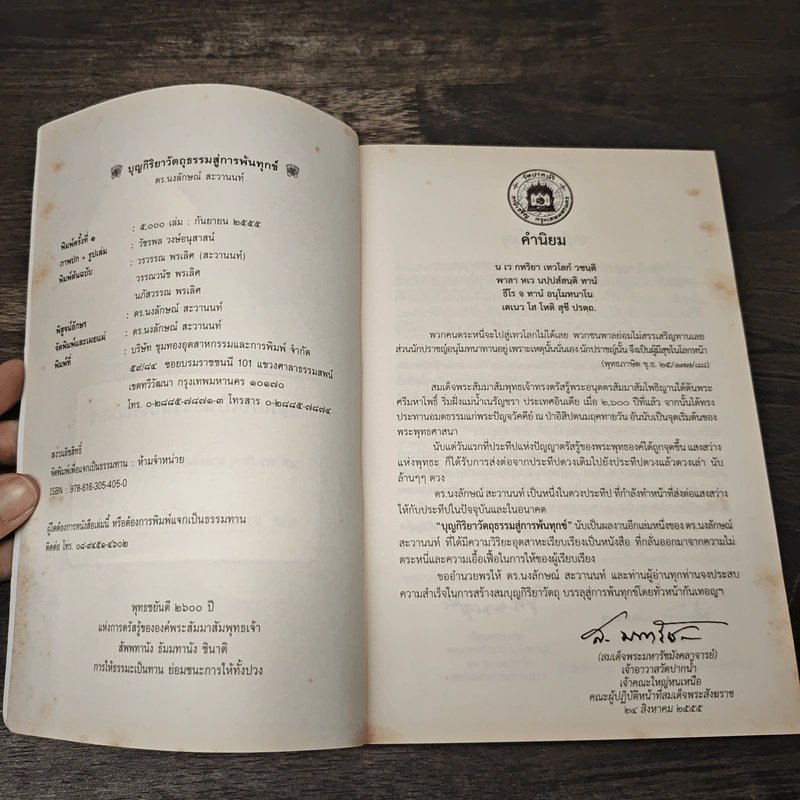 บุญกิริยาวัตถุธรรมสู่การพ้นทุกข์
ดร.นงลักษณ์ สะวานนท์
พิมพ์ครั้งที่ ๑ : ๕,๐๐๐ เล่ม : กันยายน ๒๕๕๕
ภาพปก + รูปเล่ม : วัชรพล วงษ์อนุสาสน์
พิมพ์ต้นฉบับ : วรวรรณ พรเลิศ (สะวานนท์)
วรรณวนัช พรเลิศ
นภัสวรรณ พรเลิศ
พิสูจน์อักษร : ดร.นงลักษณ์ สะวานนท์
จัดพิมพ์และเผยแผ่ : ดร.นงลักษณ์ สะวานนท์
พิมพ์ที่ : บริษัท ขุมทองอุตสาหกรรมและการพิมพ์ จำกัด
๕๙/๘๔ ซอยบรมราชชนนี 101 แขวงศาลาธรรมสพน์
เขตทวีวัฒนา กรุงเทพมหานคร ๑๐๑๗๐
โทร. ๐-๒๘๘๕-๗๘๗๑-๓ โทรสาร ๐-๒๘๘๕-๗๘๗๔
สงวนลิขสิทธิ์
จัดพิมพ์เพื่อแจกเป็นธรรมทาน : ห้ามจำหน่าย
ISBN : 978-616-305-405-0
ผู้ใดต้องการหนังสือเล่มนี้ หรือต้องการพิมพ์แจกเป็นธรรมทาน
ติดต่อ โทร. ๐๘-๙๔๕๑-๔๖๐๒
พุทธชยันตี ๒๖๐๐ ปี
แห่งการตรัสรู้ขององค์พระสัมมาสัมพุทธเจ้า
สัพพทานัง ธัมมทานัง ชินาติ
การให้ธรรมะเป็นทาน ย่อมชนะการให้ทั้งปวง
วัดปากน้ำ
ภาษีเจริญ กรุงเทพมหานคร
คำนิยม
น เว กทริยา เทวโลกํ วชนฺติ
พาลา หเว นปฺปสํสนฺติ ทานํ
ธีโร จ ทานํ อนุโมทมาโน
เตเนว โส โหติ สุขี ปรตฺถ.
พวกคนตระหนี่จะไปสู่เทวโลกไม่ได้เลย พวกชนพาลย่อมไม่สรรเสริญทานเลย
ส่วนนักปราชญ์อนุโมทนาทานอยู่ เพราะเหตุนั้นนั่นเอง นักปราชญ์นั้น จึงเป็นผู้มีสุขในโลกหน้า
(พุทธภาษิต ขุ.ธ. ๒๕/๑๗๗/๔๘)
สมเด็จพระสัมมาสัมพุทธเจ้าทรงตรัสรู้พระอนุตตรสัมมาสัมโพธิญาณใต้ต้นพระ
ศรีมหาโพธิ์ ริมฝั่งแม่น้ำเนรัญชรา ประเทศอินเดีย เมื่อ ๒,๖๐๐ ปีที่แล้ว จากนั้นได้ทรง
ประทานอมตธรรมแก่พระปัญจวัคคีย์ ณ ป่าอิสิปตนมฤคทายวัน อันนับเป็นจุดเริ่มต้นของ
พระพุทธศาสนา
นับแต่วันแรกที่ประทีปแห่งปัญญาตรัสรู้ของพระพุทธองค์ได้ถูกจุดขึ้น แสงสว่าง
แห่งพุทธะ ก็ได้รับการส่งต่อจากประทีปดวงเดิมไปยังประทีปดวงแล้วดวงเล่า นับ
ล้านๆๆ ดวง
ดร.นงลักษณ์ สะวานนท์ เป็นหนึ่งในดวงประทีป ที่กำลังทำหน้าที่ส่งต่อแสงสว่าง
ให้กับประทีปในปัจจุบันและในอนาคต
"บุญกิริยาวัตถุธรรมสู่การพ้นทุกข์" นับเป็นผลงานอีกเล่มหนึ่งของ ดร.นงลักษณ์
สะวานนท์ ที่ได้มีความวิริยะอุตสาหะเรียบเรียงเป็นหนังสือ ที่กลั่นออกมาจากความไม่
ตระหนี่และความเอื้อเฟื้อในการให้ของผู้เรียบเรียง
ขออำนวยพรให้ ดร.นงลักษณ์ สะวานนท์ และท่านผู้อ่านทุกท่านจงประสบ
ความสำเร็จในการสร้างสมบุญกิริยาวัตถุ บรรลุสู่การพ้นทุกข์โดยทั่วหน้ากันเทอญฯ
(สมเด็จพระมหารัชมังคลาจารย์)
เจ้าอาวาสวัดปากน้ำ
เจ้าคณะใหญ่หนเหนือ
คณะผู้ปฏิบัติหน้าที่สมเด็จพระสังฆราช
๒๔ สิงหาคม ๒๕๕๕